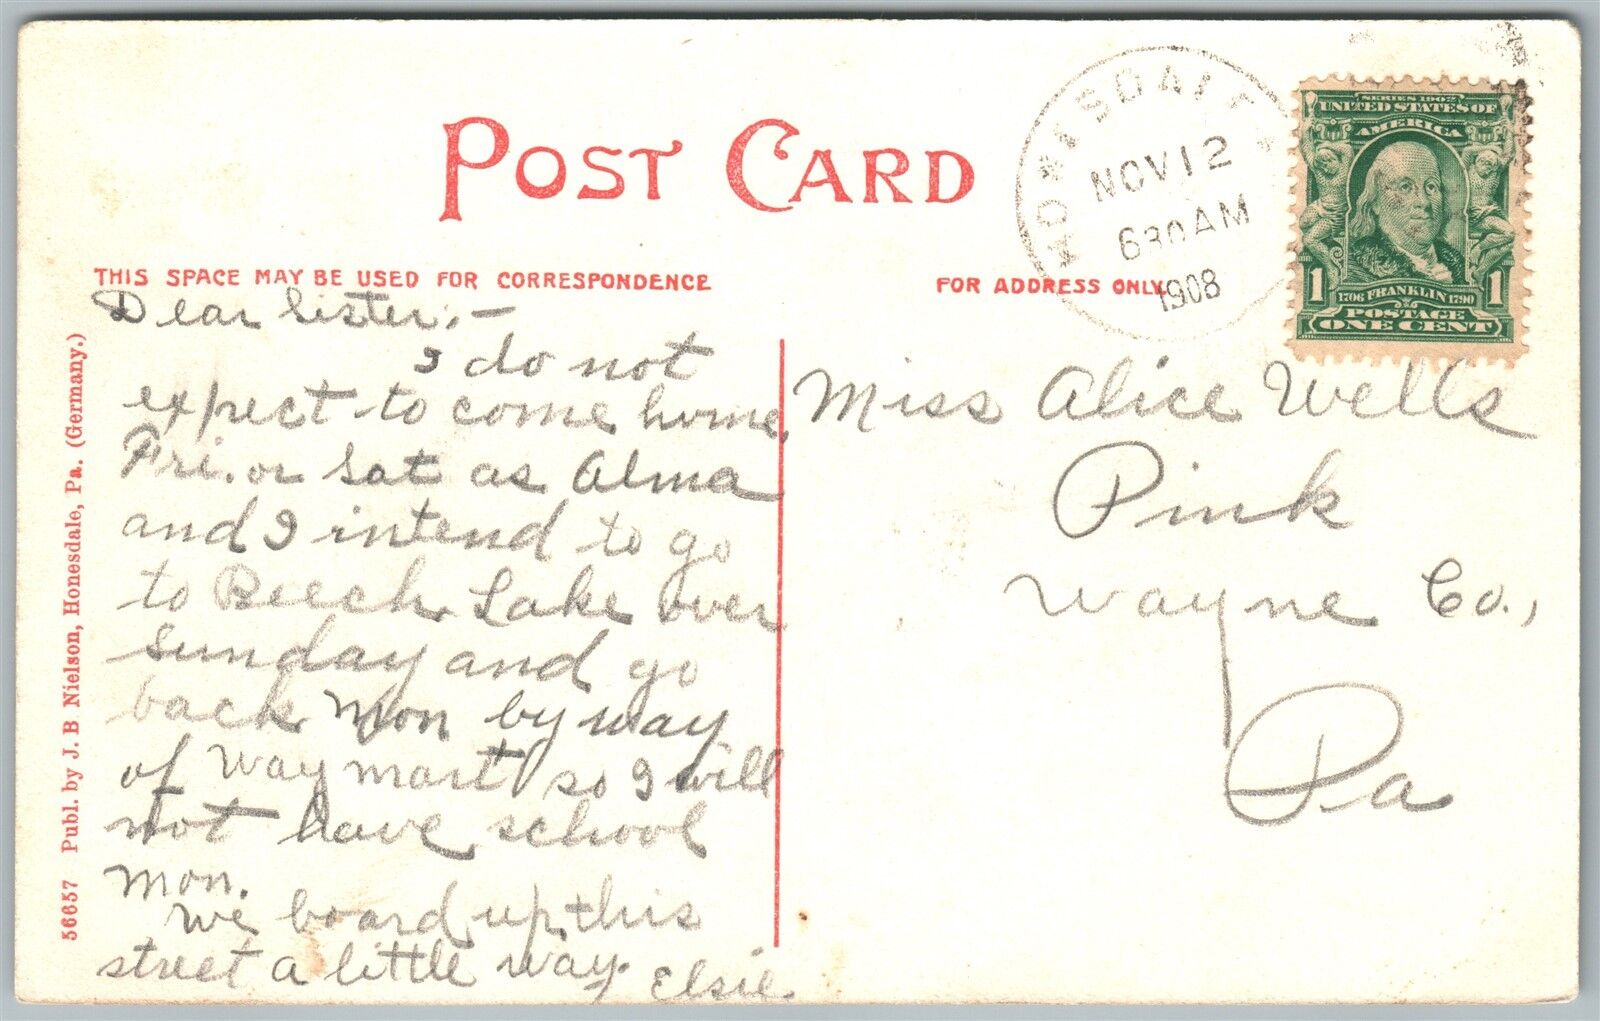 POST CARD
THIS SPACE MAY BE USED FOR CORRESPONDENCE
FOR ADDRESS ONLY.
HONESDALE
NOV 12
630 AM
1908
SERIES 1902
UNITED STATES OF
AMERICA
1 1706 FRANKLIN 1790 1
POSTAGE
ONE CENT
Dear Sister:-
I do not
expect to come home
Fri. or Sat as Alma
and I intend to go
to Beech Lake over
Sunday and go
back Mon by way
of Waymart so I will
not have school
Mon.
We board up this
street a little way.
Elsie
Miss Alice Wells
Pink
Wayne Co.,
Pa
56657 Publ. by J. B Nielson, Honesdale, Pa. (Germany.)